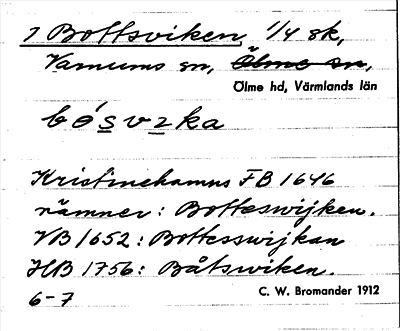 7 Bottsviken, 1/4 sk,
Varnums sn, Ölme sn,
Ölme hd, Värmlands län
bósvzka
Kristinehamns FB 1646
nämner: Botteswijken.
VB 1652: Bottesswijkan
HB 1756: Båtswiken.
6-7
C. W. Bromander 1912